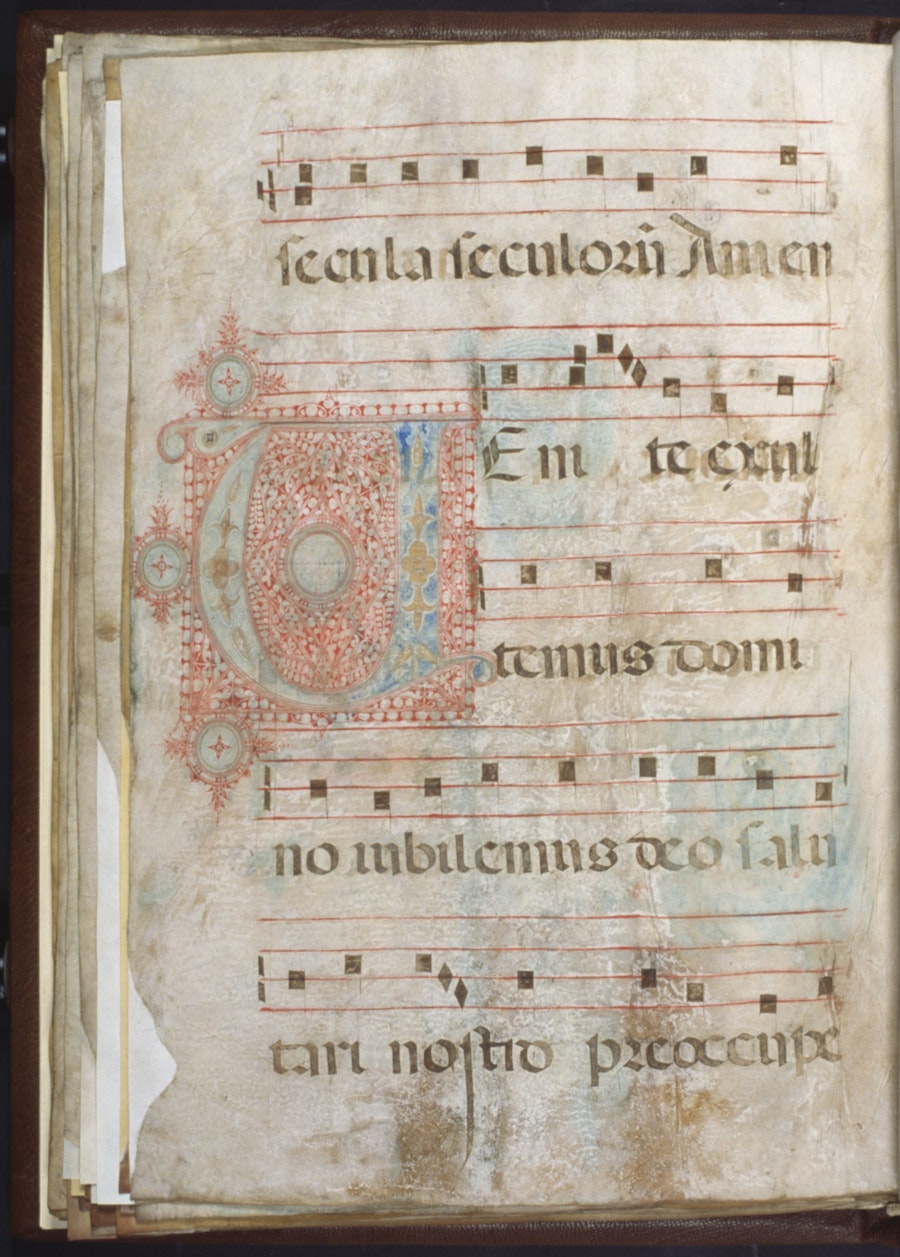 secula seculorū Amen
UEni te exul
temus domi
no iubilemus deo salu
tari nostro preoccupe